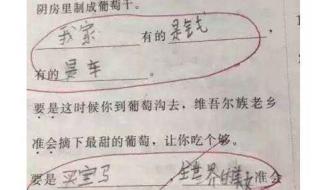 阴房里制成葡萄干。
我家 有的 是钱
有的 是车
要是这时候你到葡萄沟去,维吾尔族老乡
准会摘下最甜的葡萄,让你吃个够。
要是 买宝马 ,全世界的美女 准会